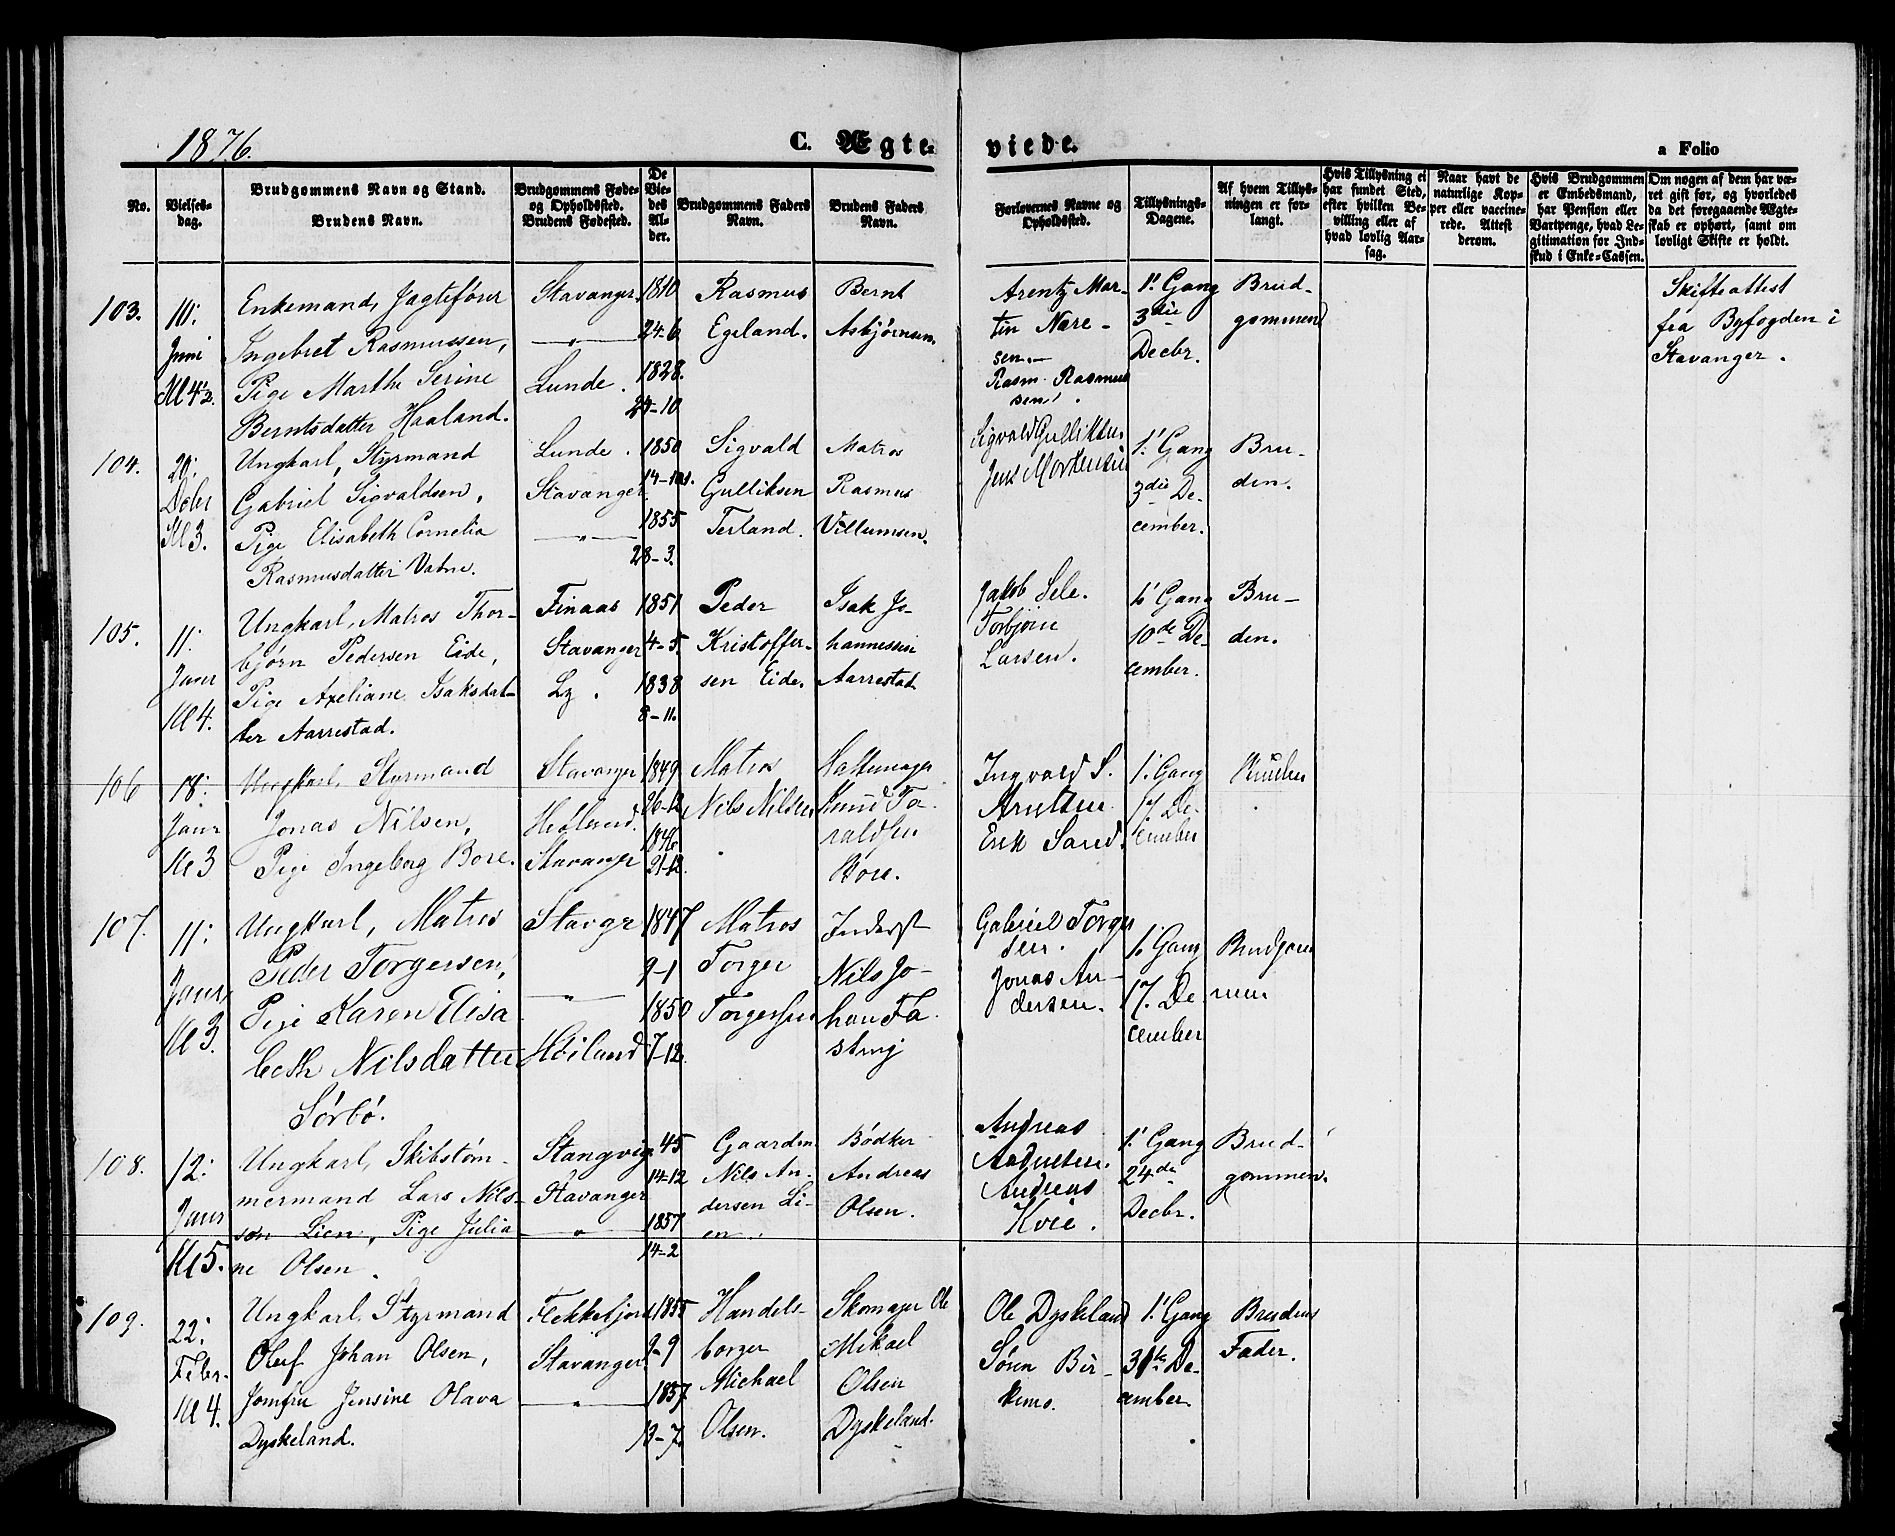 1876.
C. Ægteviede.
a Folio
No.
Vielsesdag.
Brudgommens Navn og Stand.
Brudens Navn.
Brudgommens Føde- og Opholdsted.
Brudens Fødested.
De Viedes Alder.
Brudgommens Faders Navn.
Brudens Faders Navn.
Forlovernes Navne og Opholdsted.
Tillysnings-Dagene.
Af hvem Tillysningen er forlangt.
Hvis Tillysning ei har fundet Sted, efter hvilken Bevilling eller af hvad lovlig Aarsag.
Naar havt de naturlige Kopper eller vaccinerede. Attest derom.
Hvis Brudgommen er Embedsmand, har Pension eller Vartpenge, hvad Legitimation for Indskud i Enke-Cassen.
Om nogen af dem har været gift før, og hvorledes da det foregaaende Ægteskab er ophørt, samt om lovligt Skifte er holdt.
103.
10:
Juni
Kl 4½.
Enkemand, Jagtefører
Ingebret Rasmussen,
Pige Marthe Serine
Berntsdatter Haaland.
Stavanger
— " —
Lunde.
1810
24-6
1828.
24-10
Rasmus
Egeland.
Bernt
Asbjørnsen.
Arentz Mar-
tin Nore-
sen.—
Rasm. Rasmus
sen.
1! Gang
3die
Decbr.
Brud-
gommen
Skifteattest
fra Byfogden i
Stavanger.
104.
20:
Debr
Kl 3.
Ungkarl, Styrmand
Gabriel Sigvaldsen,
Pige Elisabeth Cornelia
Rasmusdatter Vatne.
Lunde.
Stavanger.
— " —
1850
14-10.
1855
28-3.
Sigvald
Gulliksen
Terland.
Matros
Rasmus
Villumsen.
Sigvald Gulliksen.
Jens Mortensen
1! Gang
3die De-
cember.
Bru-
den.
105.
11:
Janr
Kl 4.
Ungkarl, Matros Thor-
bjørn Pedersen Eide,
Pige Axeliane Isaksdat-
ter Aarrestad.
Finaas
Stavanger
1851
4-5.
1838
8-11.
Peder
Kristoffer-
sen Eide.
Isak Jo-
hannessen
Aarrestad
Jakob Sele.
Torbjørn
Larsen.
1! Gang
10de De-
cember.
Bru-
den.
106
18:
Janr
Kl 3
Ungkarl, Styrmand
Jonas Nilsen,
Pige Ingeborg Bore.
Stavanger
Hetland.
Stavanger
1849
26-12
21-12.
Matros
Nils Nilsen
Hattemager
Knud To-
raldsen
Bore.
Ingvald S.
Arntsen
Erik Sand.
1! Gang
17. De-
cember
Bruden
107.
11:
Janr
Kl 3.
Ungkarl, Matros
Peder Torgersen,
Pige Karen Elisa
beth Nilsdatter
Sørbø.
Stavgr
— " —
Høiland
1847
9-1
1850
7-12.
Matros
Torger
Torgersen
Inderst
Nils Jo-
han Fa-
sting
Gabriel Torger
sen.
Jonas An-
dersen.
1. Gang
17. De
cember
Brudgom
men
108.
12:
Janr
Kl 5.
Ungkarl, Skibstøm-
mermand Lars Nils-
son Lien, Pige Julia-
ne Olsen.
Stangvig
Stavanger
— " —
45
14-12
1857
14-2
Gaardm.
Nils An-
dersen Li-
en.
Bødker
Andreas
Olsen.
Andreas
Andreas
Kvie.
1! Gang
24de
Decbr.
Brud-
gommen.
109.
22:
Febr.
Kl 4.
Ungkarl, Styrmand
Oluf Johan Olsen,
Jomfru Jensine Olava
Dyskeland.
Flekkefjord
Stavanger.
— " —
1855
9-9
1857
13-7.
Handels-
borger
Michael
Olsen.
Skomager Ole
Mikael
Olsen
Dyskeland.
Ole Dyskeland
Søren Bir-
kemo.
1! Gang
31te De-
cember.
Brudens
Fader.